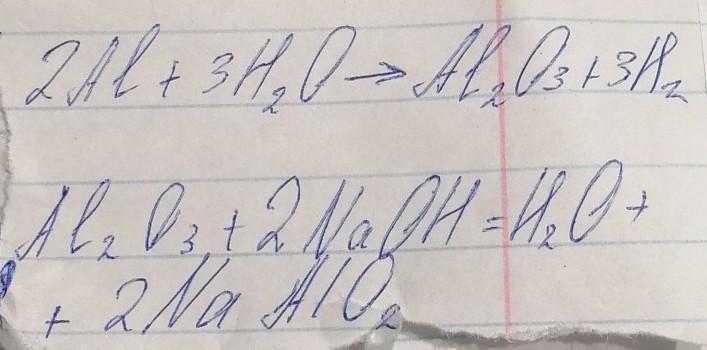 2Al + 3H₂O → Al₂O₃ + 3H₂
Al₂O₃ + 2NaOH = H₂O +
+ 2NaAlO₂